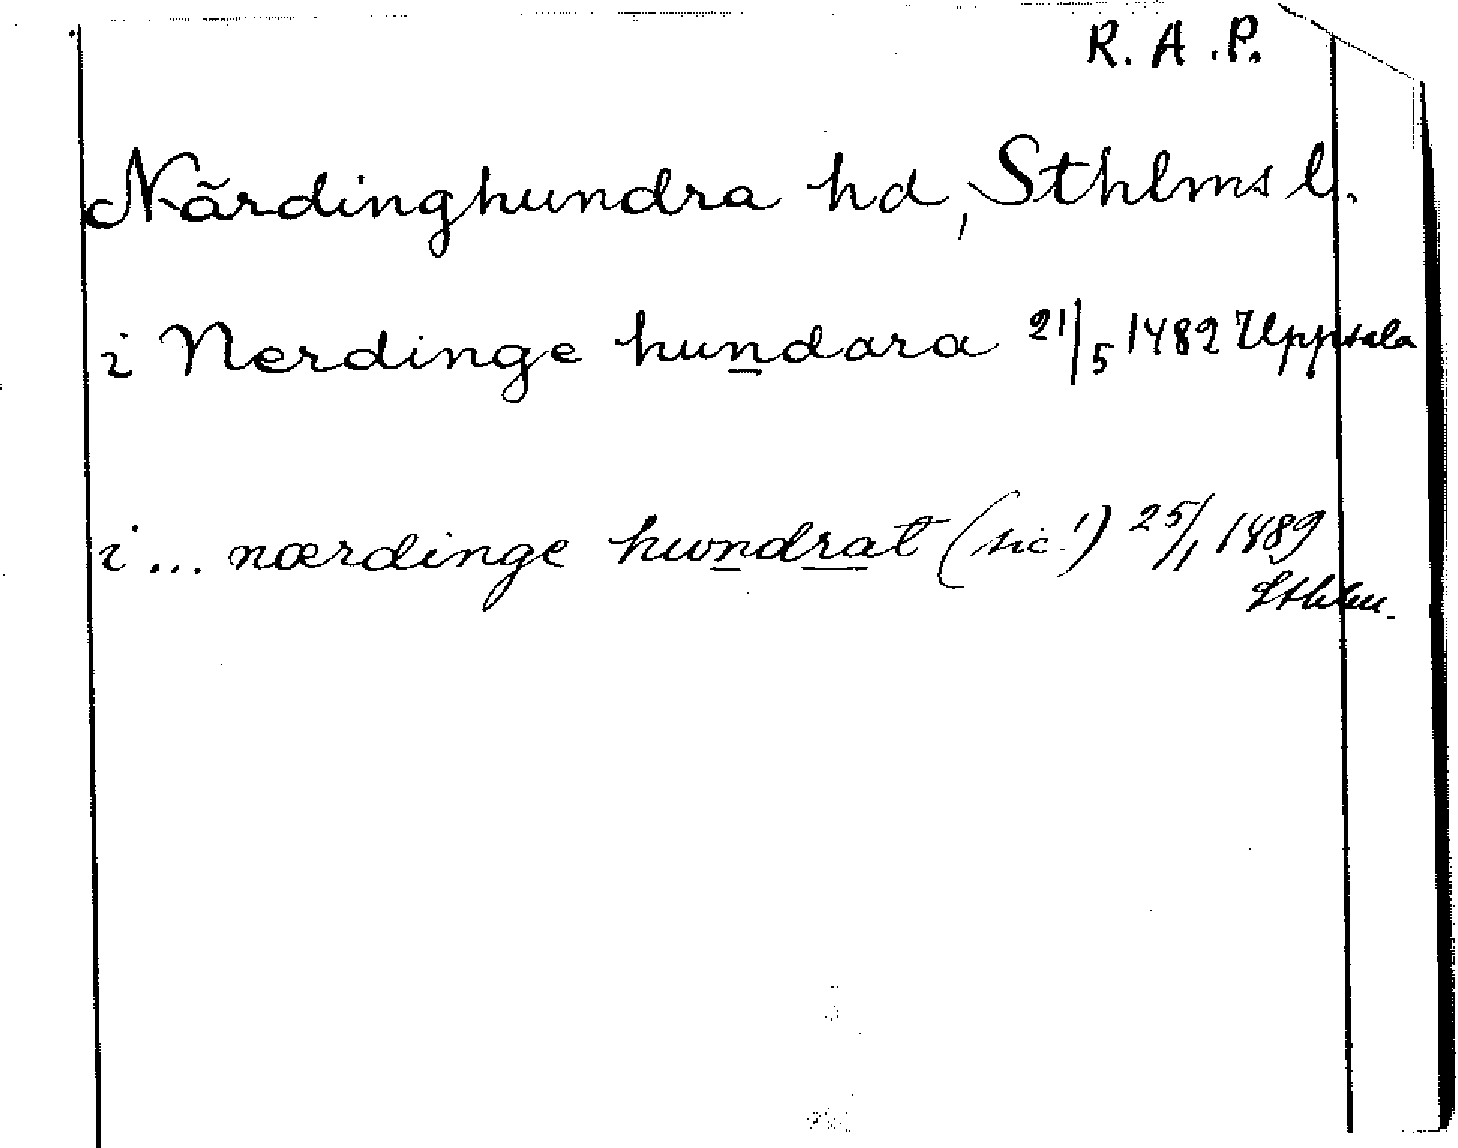 R. A. P.
Närdinghundra hd, Sthlms l.
i Nerdinge hundara 21/5 1482 Uppsala
i ... nærdinge hwndrat (sic!) 25/1 1489
Sthlm.